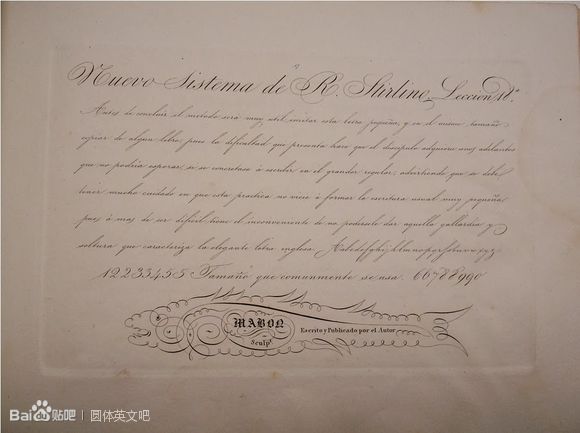 Nuevo Sistema de R. Stirling. Leccion 18ª.
Antes de concluir el método será muy útil imitar esta letra pequeña, y en el mismo tamaño
copiar de algun libro, pues la dificultad que presenta hace que el discipulo adquiera unos adelantos
que no podria esperar si se concretase á escribir en el grandor regular; advirtiendo que se debe
tener mucho cuidado en que esta practica no vicie á formar la escritura usual muy pequeña
pues á mas de ser dificil tiene el inconveniente de no podersele dar aquella gallardia y
soltura que caracteriza la elegante letra inglesa. Aabcdefghijklmnopqrstuvxyz
12233455 Tamaño que comunmente se usa. 66788990
MABON
Sculpᵗ
Escrito y Publicado por el Autor
Bai du 贴吧 | 圆体英文吧